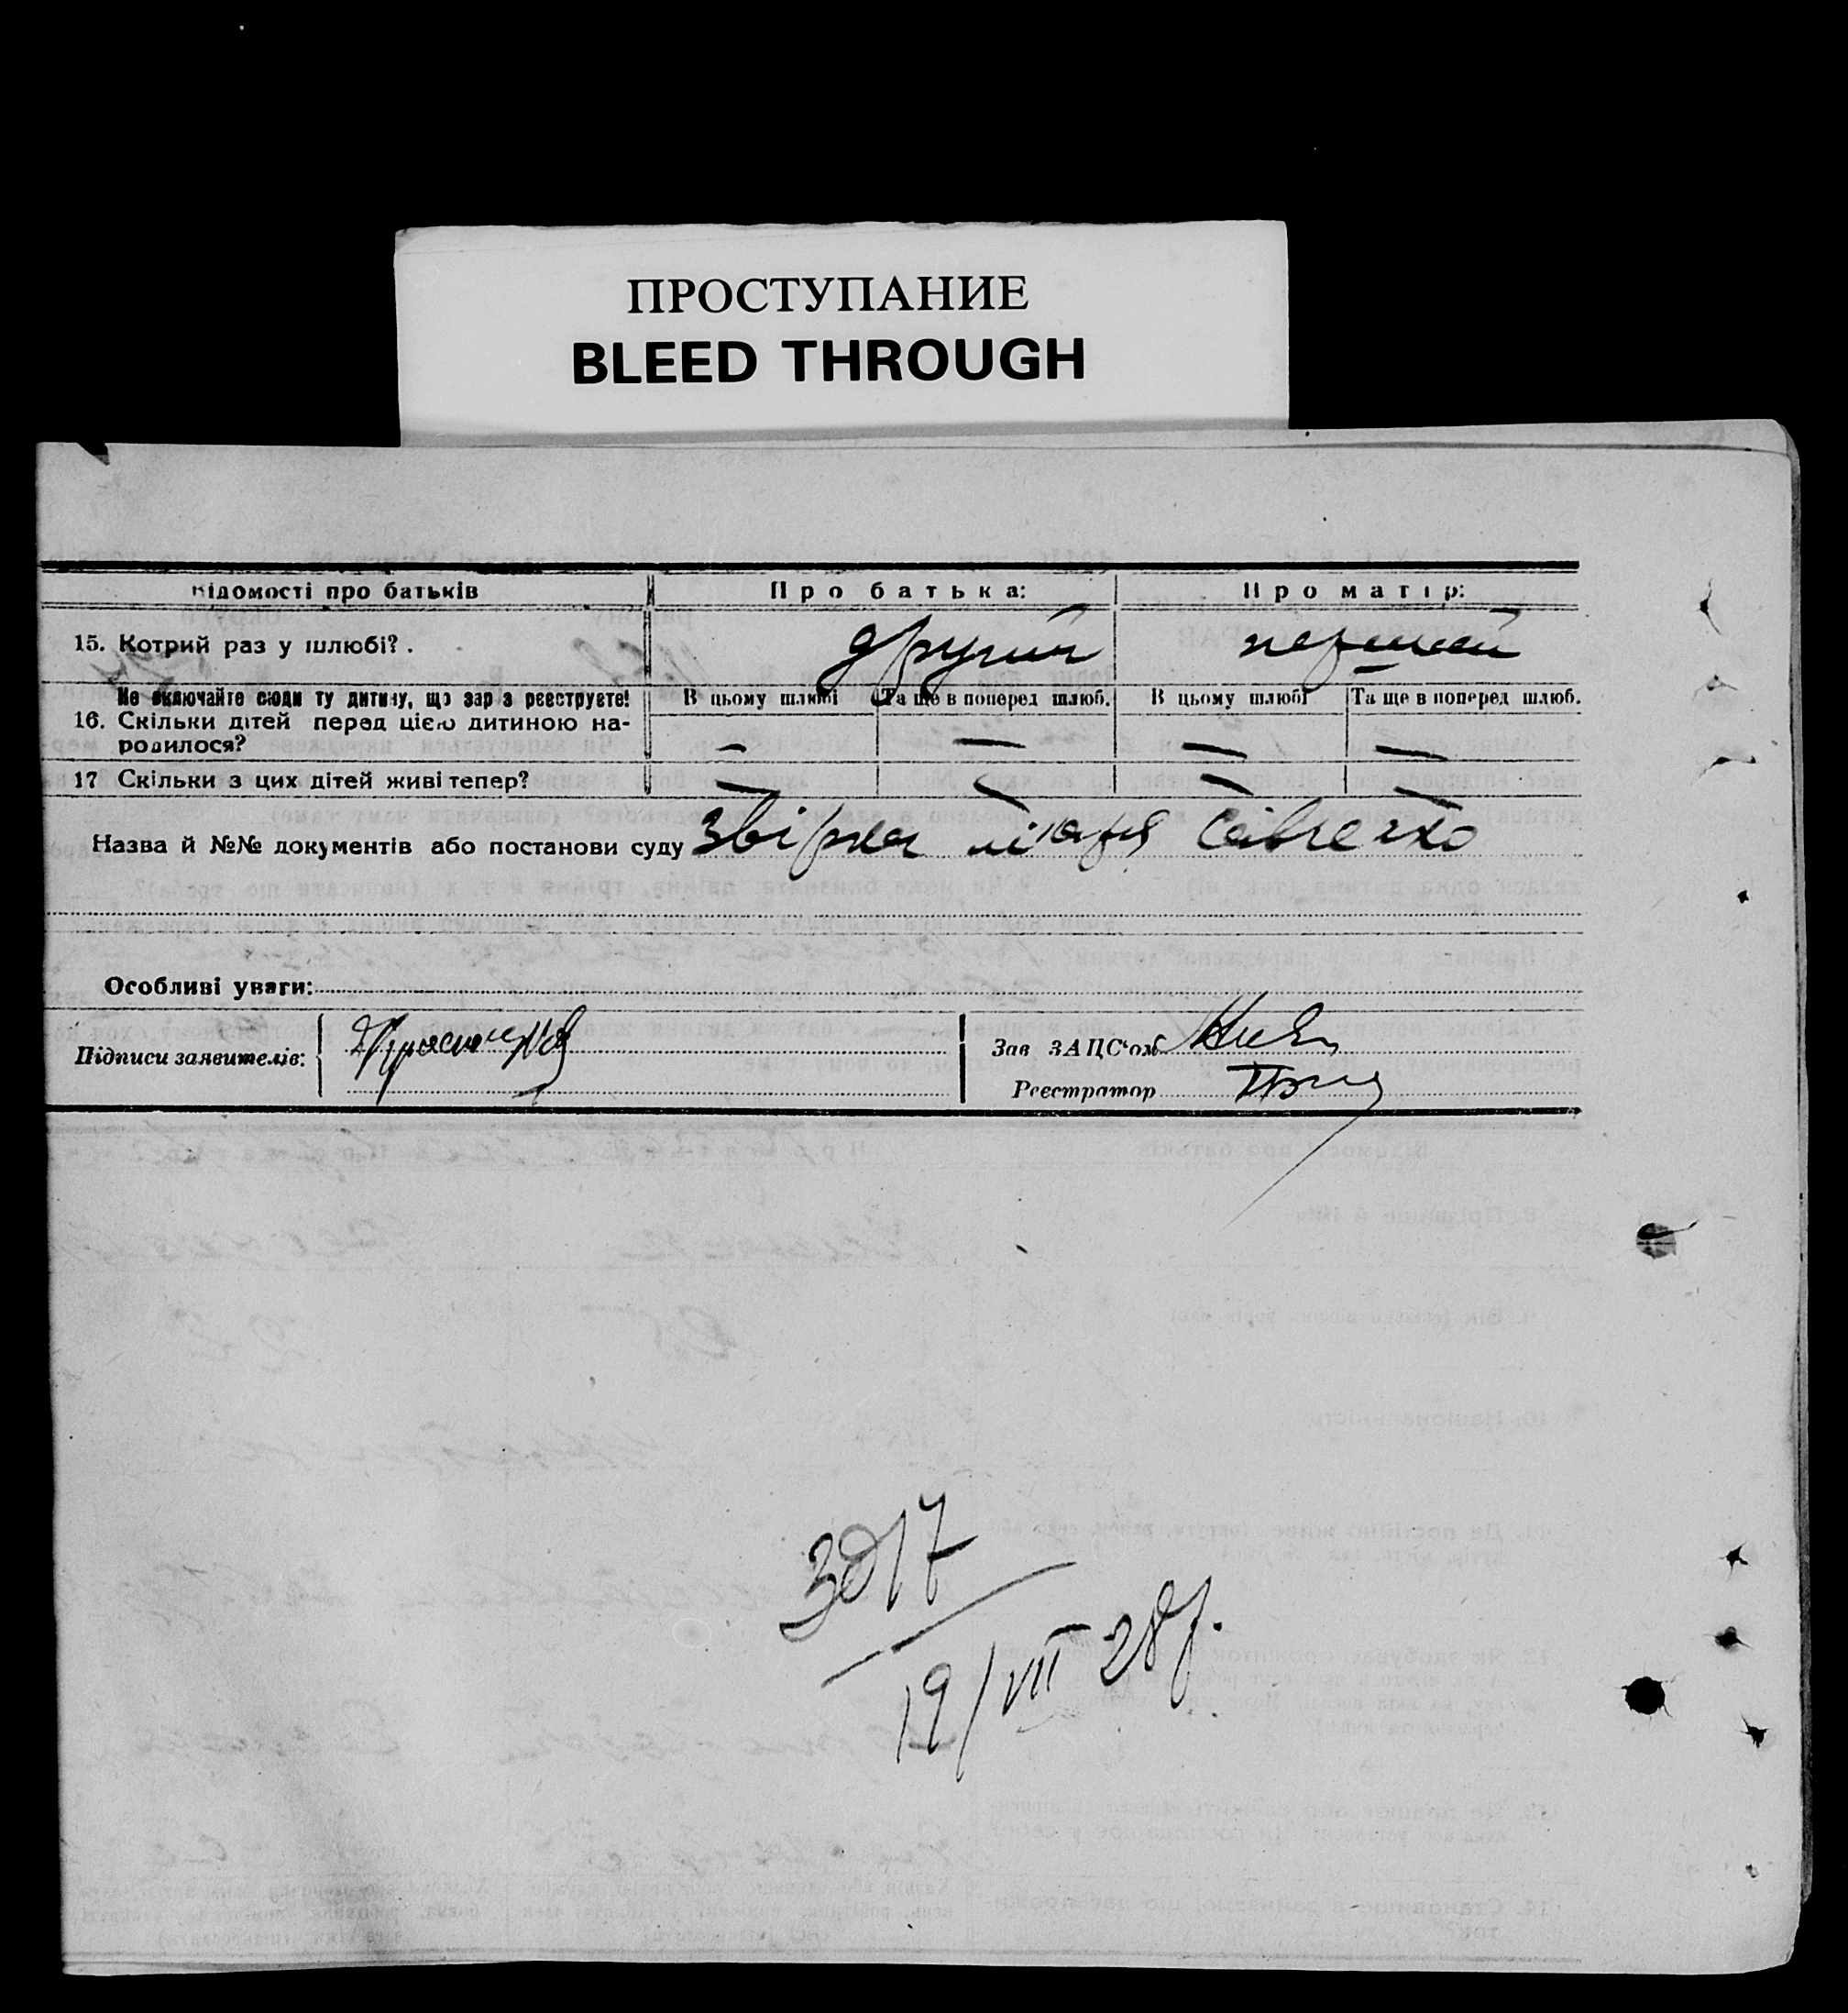 ПРОСТУПАНИЕ
BLEED THROUGH
Відомості про батьків Про батька: Про матір:
15. Котрий раз у шлюбі? . другий перший
Не включайте сюди ту дитину, що зараз реєструєте! В цьому шлюбі Та ще в поперед шлюб. В цьому шлюбі Та ще в поперед шлюб.
16. Скільки дітей перед цією дитиною на-
родилося? — — — —
17 Скільки з цих дітей живі тепер? — — — —
Назва й №№ документів або постанови суду Звірка лікаря Савченко
Особливі уваги:
Підписи заявителів:
Зав ЗАГС'ом
Реєстратор
3017
19/VII 28р.